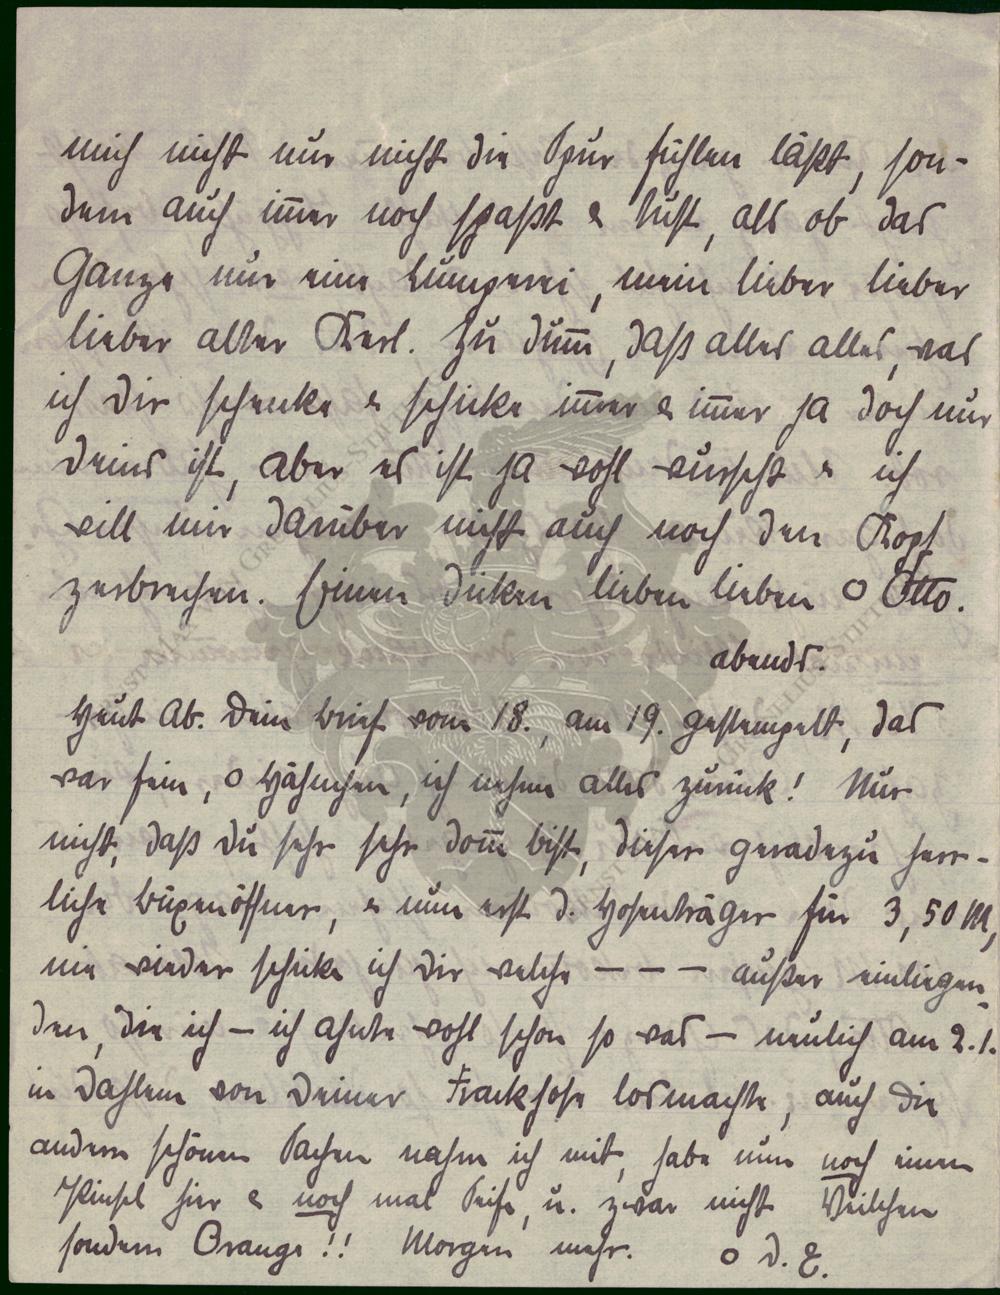 mich nicht nur nicht die Spur fühlen läßt, son-
dern auch im̄er noch spaßt & tust, als ob das
Ganze nur eine Lumperei, mein lieber lieber
lieber alter Kerl. Zu dum̄, daß alles alles, was
ich Dir schenke & schicke im̄er & im̄er ja doch nur
Deins ist, aber es ist ja wohl wurscht & ich
will mir darüber nicht auch noch den Kopf
zerbrechen. Einen dicken lieben lieben o Otto.
abends.
Heut Ab. Dein Brief vom 18., am 19. gestempelt, das
war fein, o Hähnchen, ich nehme alles zurück! Nur
nicht, daß Du sehr sehr dom̄ bist, dieser geradezu herr-
liche Büxenöffner, & nun erst d. Hosenträger für 3,50 M,
nie wieder schicke ich Dir welche – – – außer einliegen-
den, die ich – ich ahnte wohl schon so was – neulich am 2.1.
in Dahlem von Deiner Frackhose losmachte, auch die
andern schönen Sachen nahm ich mit, habe nun noch einen
Pinsel hier & noch mal Seife, u. zwar nicht Veilchen
sondern Orange!! Morgen mehr. o D. E.
GRYPHIUS STIFT